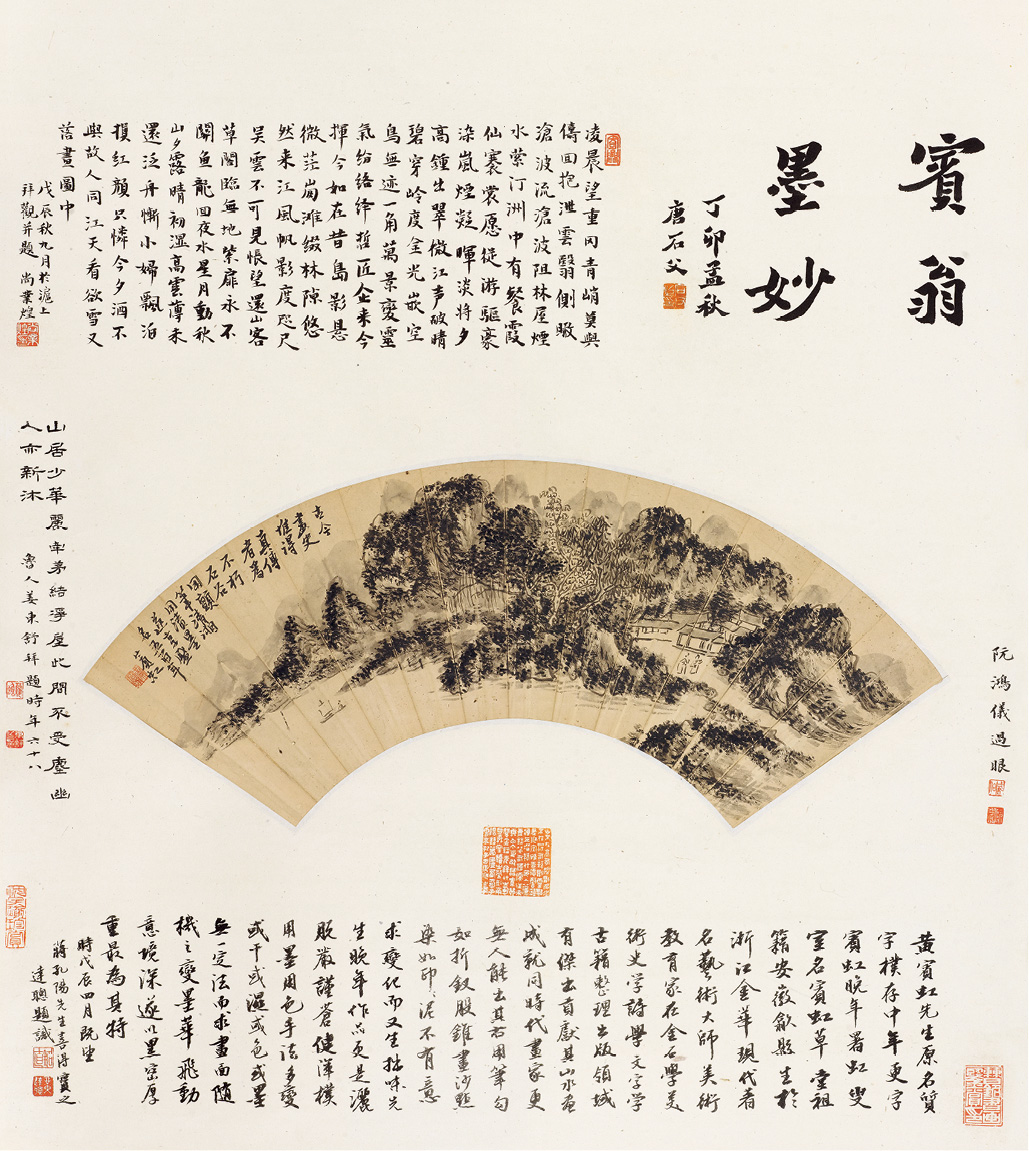 賓翁
墨妙
丁卯孟秋
唐石父
凌晨望重冈青峭莫與
儔回抱泄雲翳側瞰
滄波流滄波阻林屋煙
水縈汀洲中有餐霞
仙褰裳愿從游驅豪
染嵐煙凝暉淡將夕
高鍾出翠微江声破晴
碧穿岭度金光嵌空
鳥無迹一角萬景變靈
氣紛絡绎哲匠企来今
揮今如在昔島影悬
微茫崗滩缀林隙悠
然来江風帆影度咫尺
吴雲不可見悵望還山客
草閣臨無地柴扉永不
關魚龍回夜水星月動秋
山夕露晴初湿高雲薄未
還泛舟慚小婦飄泊
損紅顔只憐今夕酒不
與故人同江天看欲雪又
落畫圖中
戊辰秋九月於滬上
拜觀并題 尚業煌
山居少華麗牽茅結淨屋此間不受塵幽
人亦新沐
魯人姜東舒拜題時年六十八
古今
畫史
惟得
真傳
者為
不朽
阮鴻儀過眼
黄賓虹先生原名質
字樸存中年更字
賓虹晚年署虹叟
室名賓虹草堂祖
籍安徽歙縣生於
浙江金華現代著
名藝術大師美術
教育家在金石學美
術史學詩學文字學
古籍整理出版領域
有傑出貢獻其山水畫
成就同時代畫家更
無人能出其右用筆勾
如折釵股錐畫沙點
染如印印泥不有意
求變化而又生拙味先
生晚年作品更是濃
腴嚴謹蒼健渾樸
用墨用色手法多變
或干或濕或色或墨
無一定法而求畫面隨
機之變墨華飛動
意境深邃以黑密厚
重最為其特
時戊辰四月既望
蔣孔陽先生喜得寶之
達聰題識